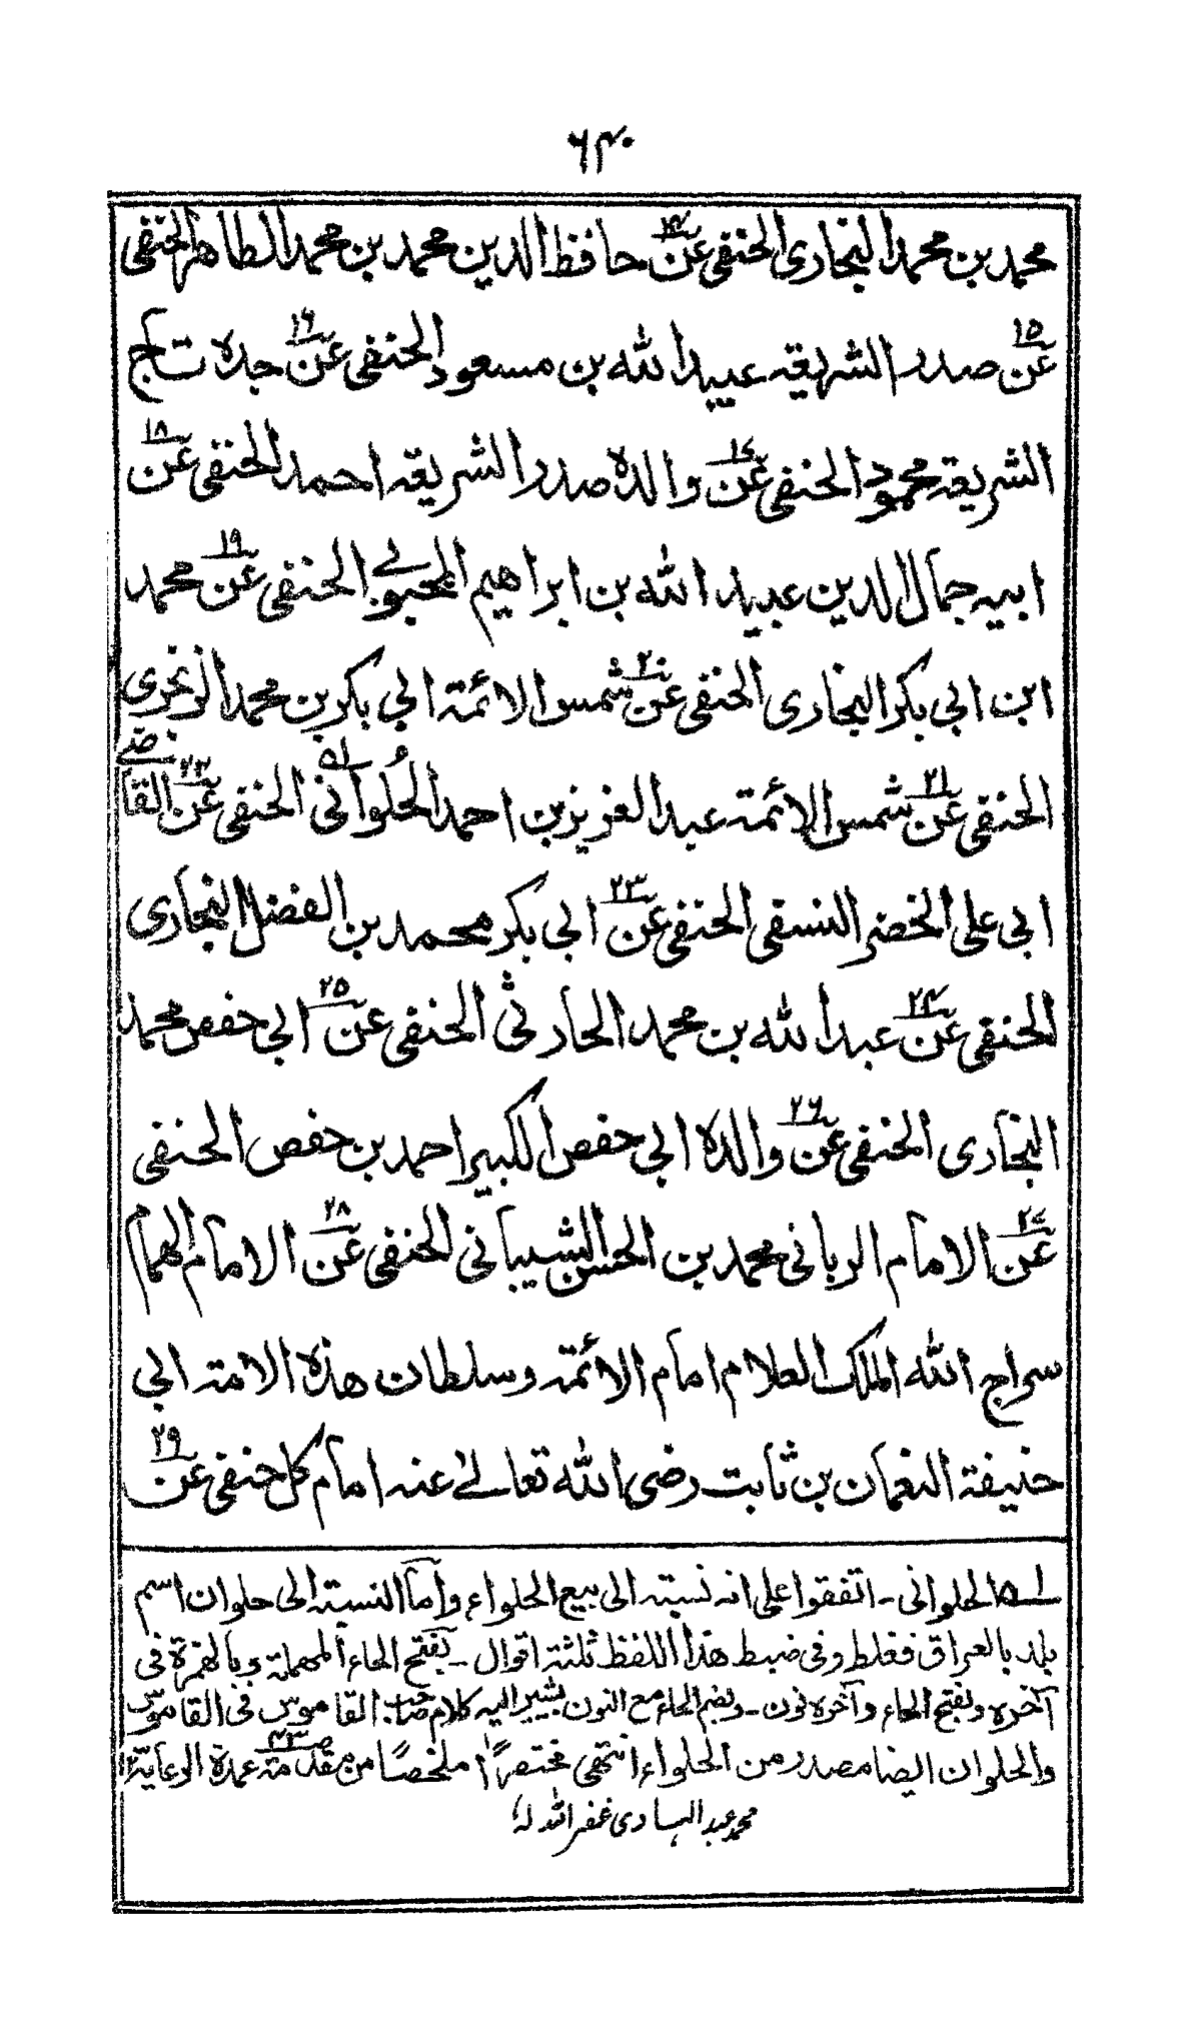 ۶۴۰
محمد بن محمد البخاری الحنفی عن ۱۴ حافظ الدین محمد بن محمد الطاهر الحنفی
عن ۱۵ صدر الشریعۃ عبید الله بن مسعود الحنفی عن ۱۶ جدہ تاج
الشریعۃ محمود الحنفی عن ۱۷ والدہ صدر الشریعۃ احمد الحنفی عن ۱۸
ابیہ جمال الدین عبید الله بن ابراهیم المحبوبی الحنفی عن ۱۹ محمد
ابن ابی بکر البخاری الحنفی عن ۲۰ شمس الائمۃ ابی بکر بن محمد الزرنجری
الحنفی عن ۲۱ شمس الائمۃ عبد العزیز بن احمد الحُلوانی الحنفی عن ۲۲ القاضی
ابی علی الخضر النسفی الحنفی عن ۲۳ ابی بکر محمد بن الفضل البخاری
الحنفی عن ۲۴ عبد الله بن محمد الحارثی الحنفی عن ۲۵ ابی حفص محمد
البخاری الحنفی عن ۲۶ والدہ ابی حفص الکبیر احمد بن حفص الحنفی
عن ۲۷ الامام الربانی محمد بن الحسن الشیبانی الحنفی عن ۲۸ الامام الهمام
سراج الله الملک العلام امام الائمۃ وسلطان هذہ الامۃ ابی
حنیفۃ النعمان بن ثابت رضی الله تعالیٰ عنہ امام کل حنفی عن ۲۹
لـه الحلوانی ـ اتفقوا علی انہ نسبتہ الی بیع الحلواء وامّا النسبۃ الی حلوان اسم
بلد بالعراق فغلط وفی ضبط هذا اللفظ ثلثۃ اقوال ـ بفتح الحاء المهملۃ وبالهمزة فی
آخرہ وبفتح الحاء وآخرہ نون ـ وبضم الحاء مع النون یشیر الیہ کلام صاحب القاموس فی القاموس
والحلوان ایضا مصدر من الحلواء انتهی مختصراً ملخصًا من مقدمۃ عمدة الرعایۃ
محمد عبد الهادی غفر الله لہٗ